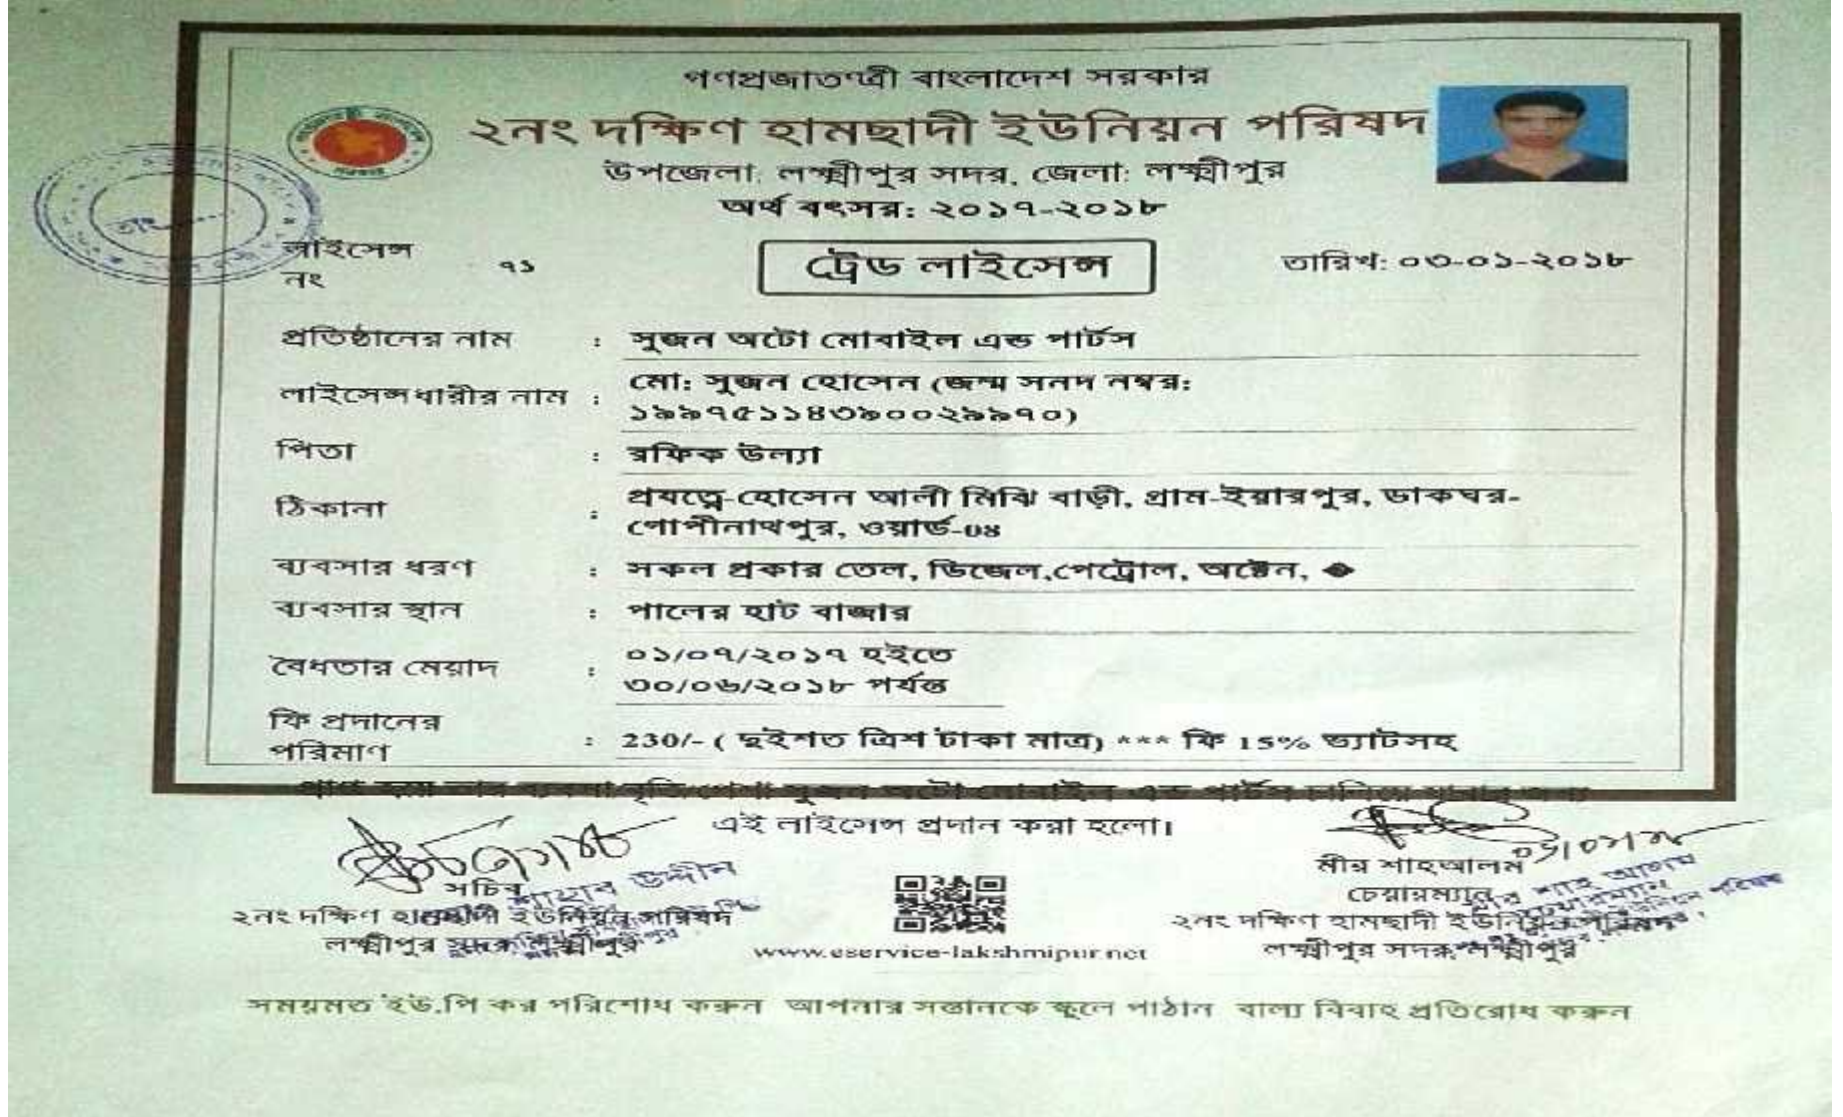 গণপ্রজাতন্ত্রী বাংলাদেশ সরকার
২নং দক্ষিণ হামছাদী ইউনিয়ন পরিষদ
উপজেলা: লক্ষ্মীপুর সদর, জেলা: লক্ষ্মীপুর
অর্থ বৎসর: ২০১৭-২০১৮
লাইসেন্স নং ৭১
ট্রেড লাইসেন্স
তারিখ: ০৩-০১-২০১৮
প্রতিষ্ঠানের নাম : সুজন অটো মোবাইল এন্ড পার্টস
লাইসেন্সধারীর নাম : মো: সুজন হোসেন (জন্ম সনদ নম্বর:
১৯৯৭৫১১৪৩৯০০২৯৯৭০)
পিতা : রফিক উল্যা
ঠিকানা : প্রযত্নে-হোসেন আলী মিঝি বাড়ী, গ্রাম-ইয়ারপুর, ডাকঘর-
গোপীনাথপুর, ওয়ার্ড-০৪
ব্যবসার ধরণ : সকল প্রকার তেল, ডিজেল,পেট্রোল, অক্টেন,
ব্যবসার স্থান : পালের হাট বাজার
বৈধতার মেয়াদ : ০১/০৭/২০১৭ হইতে
৩০/০৬/২০১৮ পর্যন্ত
ফি প্রদানের
পরিমাণ : 230/- ( দুইশত ত্রিশ টাকা মাত্র) *** ফি 15% ভ্যাটসহ
সুজন অটো মোবাইল এন্ড পার্টস
এই লাইসেন্স প্রদান করা হলো।
সচিব
২নং দক্ষিণ হামছাদী ইউনিয়ন পরিষদ
লক্ষ্মীপুর সদর, লক্ষ্মীপুর
www.eservice-lakshmipur.net
মীর শাহআলম
চেয়ারম্যান
২নং দক্ষিণ হামছাদী ইউনিয়ন পরিষদ
লক্ষ্মীপুর সদর, লক্ষ্মীপুর
সময়মত ইউ.পি কর পরিশোধ করুন আপনার সন্তানকে স্কুলে পাঠান বাল্য বিবাহ প্রতিরোধ করুন